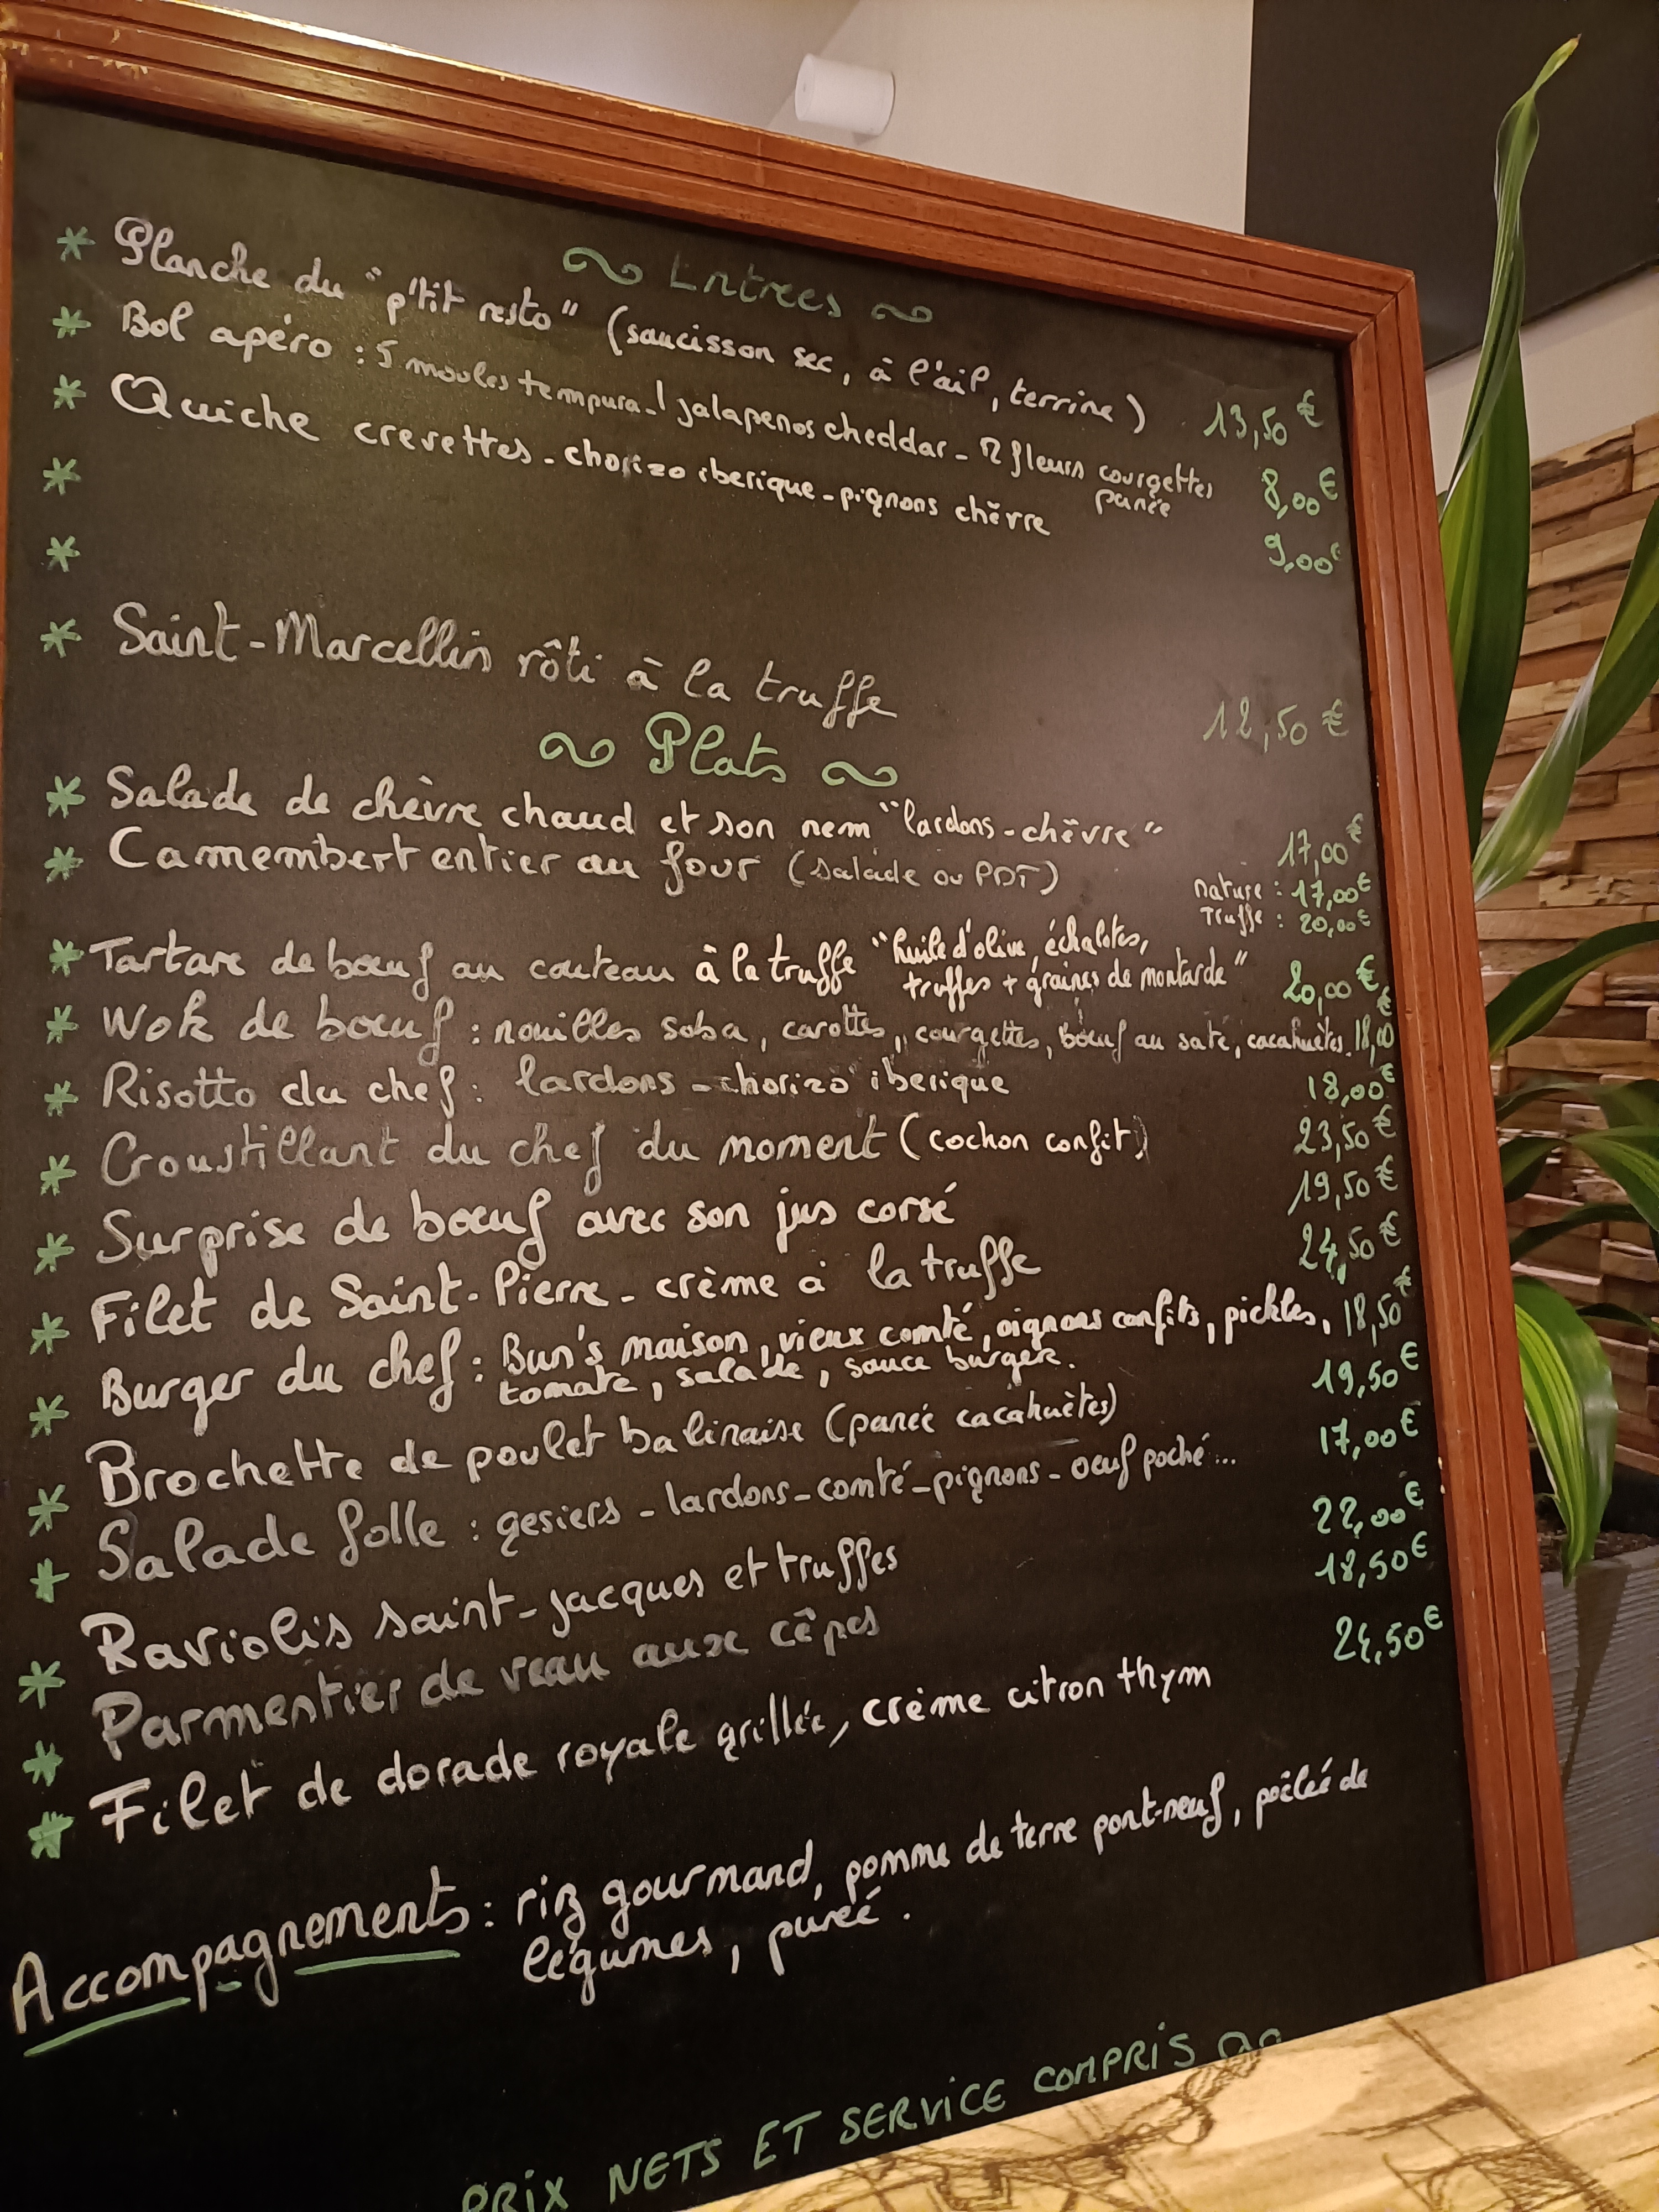 Entrees
* Planche du "p'tit resto" (saucisson sec, à l'ail, terrine) 13,50€
* Bol apéro : 5 moules tempura - 1 jalapenos cheddar - 2 fleurs courgettes panée 8,00€
* Quiche crevettes - chorizo iberique - pignons chèvre 9,00€
*
*
* Saint-Marcellin rôti à la truffe 12,50€
Plats
* Salade de chèvre chaud et son nem "lardons-chèvre" 17,00€
* Camembert entier au four (salade ou PDT) nature : 17,00€
Truffe : 20,00€
* Tartare de bœuf au couteau à la truffe "huile d'olive, échalotes,
truffes + graines de moutarde" 20,00€
* Wok de bœuf : nouilles soba, carottes, courgettes, bœuf au saté, cacahuètes. 18,00€
* Risotto du chef : lardons - chorizo iberique 18,00€
* Croustillant du chef du moment (cochon confit) 23,50€
* Surprise de bœuf avec son jus corsé 19,50€
* Filet de Saint-Pierre - crème à la truffe 24,50€
* Burger du chef : Bun's maison, vieux comté, oignons confits, pickles, 18,50€
tomate, salade, sauce burger.
* Brochette de poulet balinaise (panée cacahuètes) 19,50€
* Salade folle : gesiers - lardons - comté - pignons - oeuf poché... 17,00€
* Raviolis saint-jacques et truffes 22,00€
* Parmentier de veau aux cêpes 18,50€
* Filet de dorade royale grillée, crème citron thym 24,50€
Accompagnements : riz gourmand, pomme de terre pont-neuf, poêlée de
légumes, purée.
PRIX NETS ET SERVICE COMPRIS